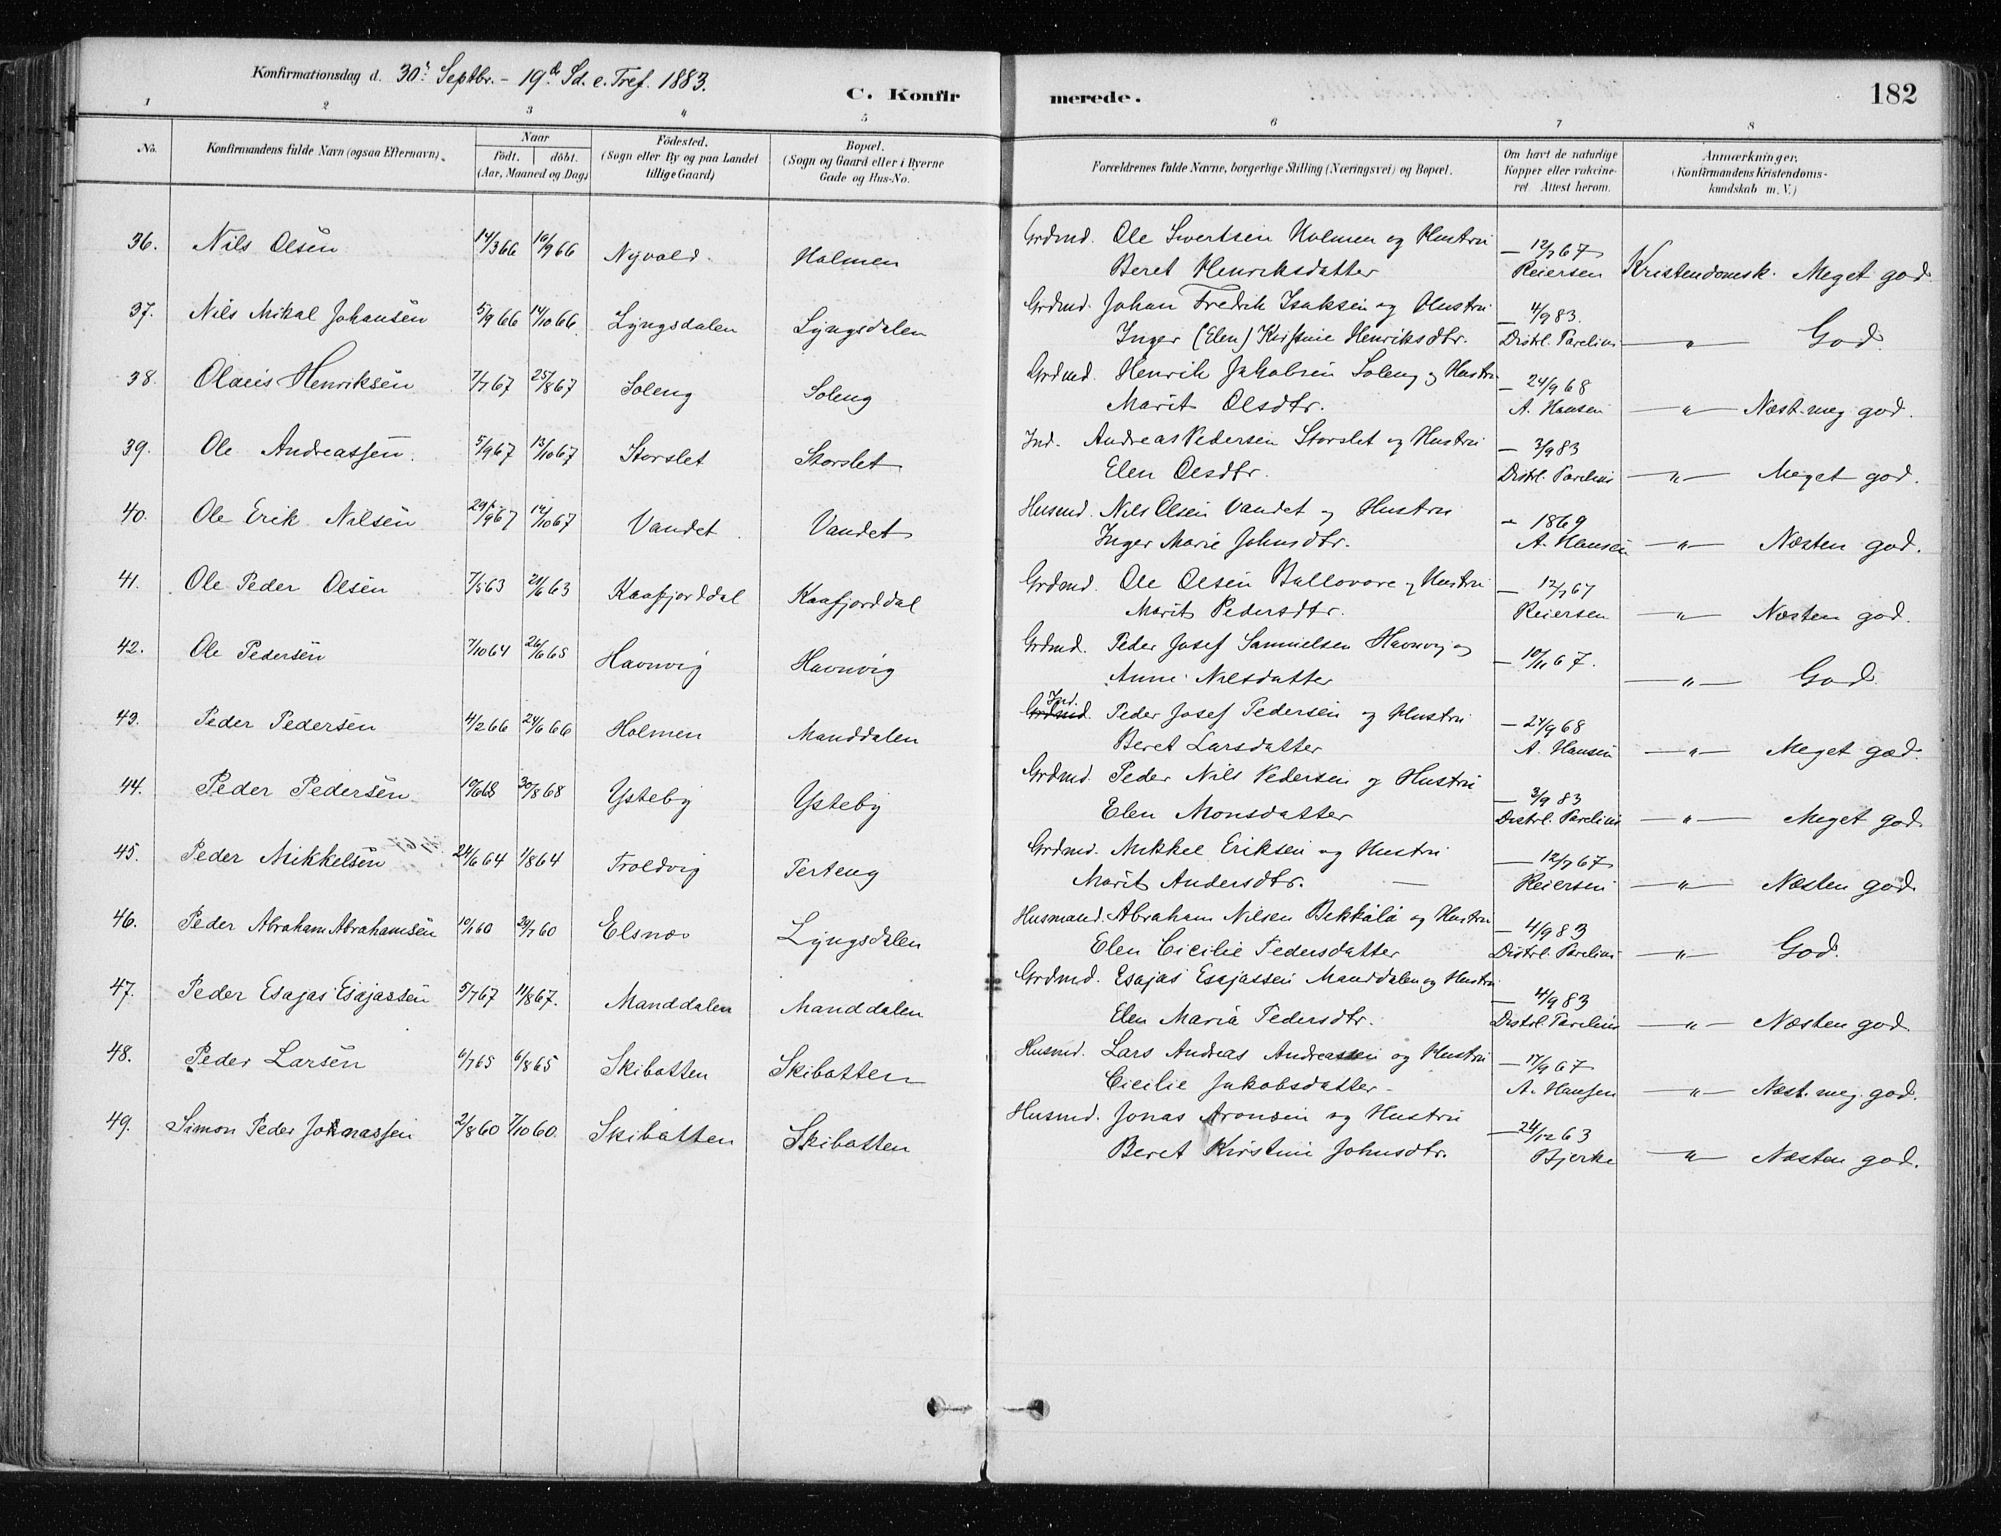 Konfirmationsdag d. 30' Septbr. - 19de Sd. e. Tref. 1883.
C. Konfirmerede.
182
1 2 3 4 5 6 7 8
No. Konfirmandens fulde Navn (ogsaa Efternavn). Naar födt. döbt. (Aar, Maaned og Dag) Födested. (Sogn eller By og paa Landet tillige Gaard) Bopæl. (Sogn og Gaard eller i Byerne Gade og Hus-No. Forældrenes fulde Navne, borgerlige Stilling (Næringsvei) og Bopæl. Om havt de naturlige Kopper eller vakcineret Attest herom. Anmærkninger. (Konfirmandens Kristendomskundskab m. V.)
36. Nils Olsen 14/3 66 16/9 66 Nyvold. Holmen Grdmd. Ole Sivertsen Holmen og Hustru — 12/7 67
Beret Henriksdatter Reiersen Kristendomsk. Meget god
37. Nils Mikal Johansen 5/9 66 14/10 66. Lyngsdalen Lyngsdalen Grdmd. Johan Fredrik Isaksen og Hustru — 4/9 83.
Inger (Elen) Kirstine Henriksdtr. Distrl. Parelius —"— God.
38. Olaus Henriksen 7/7 67 25/8 67 Soleng Soleng Grdmd. Henrik Jakobsen Soleng og Hustru — 24/9 68
Marit Olsdtr. A. Hansen —"— Næst. meg god.
39. Ole Andreassen. 5/9 67 13/10 67 Storslet Storslet Ind. Andreas Pedersen Storslet og Hustru — 3/9 83
Elen Olsdtr. Distrl. Parelius —"— Meget god.
40. Ole Erik Nilsen 29/9 67 14/10 67 Vandet Vandet Husmd. Nils Olsen Vandet og Hustru — 1869
Inger Marie Johnsdtr. A. Hansen —"— Næsten god.
41. Ole Peder Olsen 7/5 63 21/6 63 Kaafjorddal Kaafjorddal Grdmd. Ole Olsen Ballovare og Hustru — 12/7 67
Marit Pedersdtr. Reiersen —"— Næsten god.
42. Ole Pedersen 7/10 64 26/6 65 Havnvig Havnvig Grdmd. Peder Josef Samuelsen Havnvig og — 10/11 67.
Anne Nilsdatter —"— God.
43. Peder Pedersen 4/2 66 24/6 66 Holmen Manddalen Grdmd. Ind. Peder Josef Pedersen og Hustru — 24/9 68
Beret Larsdatter A. Hansen —"— Meget god.
44. Peder Pedersen 19/6 68 30/8 68 Ysteby Ysteby Grdmd. Peder Nils Pedersen og Hustru — 3/9 83
Elen Monsdatter Distrl. Parelius —"— Meget god
45. Peder Mikkelsen 24/6 64 1/8 64 Troldvig Terteng Grdmd. Mikkel Eriksen og Hustru — 12/7 67
Marit Andersdtr. — Reiersen —"— Næsten god
46. Peder Abraham Abrahamsen 10/1 60 29/7 60 Elsnæs Lyngsdalen Husmand. Abraham Nilsen Bekkalä og Hustru — 4/9 83
Elen Cicilie Pedersdatter Distrl. Parelius —"— God.
47. Peder Esajas Esajassen 5/7 67 11/8 67. Manddalen Manddalen Grdmd. Esajas Esajassen Manddalen og Hustru — 4/9 83
Elen Maria Pedersdtr. Distrl. Parelius —"— Næsten god.
48. Peder Larsen 6/7 65 6/8 65 Skibotten Skibotten Husmd. Lars Andreas Andreassen og Hustru — 17/9 67
Cicilie Jakobsdatter - A. Hansen —"— Næst. meg. god.
49. Simon Peder Jonassen 2/8 60 7/10 60. Skibotten Skibotten Husmd. Jonas Aronsen og Hustru — 24/12 63
Beret Kirstine Johnsdtr. Bjerke —"— Næsten god.